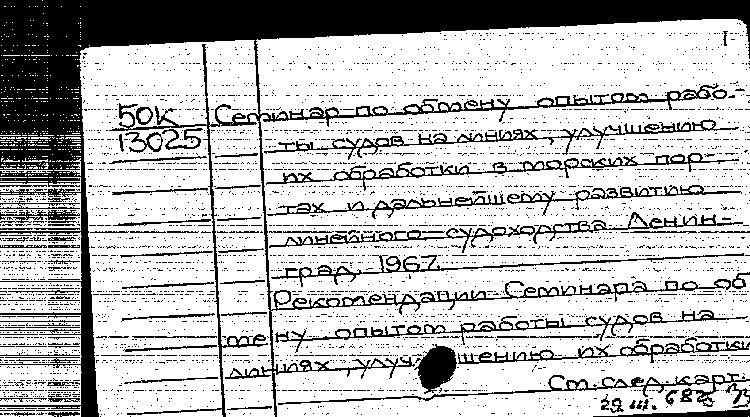 50К Семинар по обмену опытом рабо-
13025 ты судов на линиях, улучшению
их обработки в морских пор-
тах и дальнейшему развитию
линейного судоходства Ленин-
град, 1967.
Рекомендации Семинара по об
мену опытом работы судов на
линиях, улучшению их обработки
См. след. карт.
29 III. 68г.